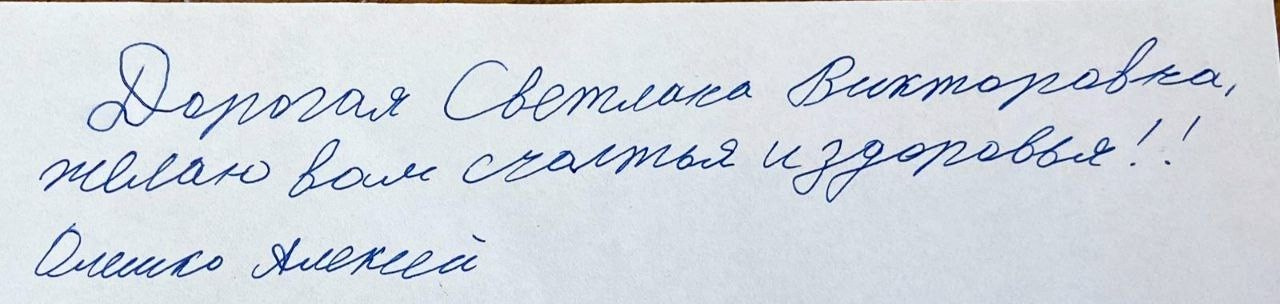 Дорогая Светлана Викторовна,
желаю вам счастья и здоровья!!
Олешко Алексей